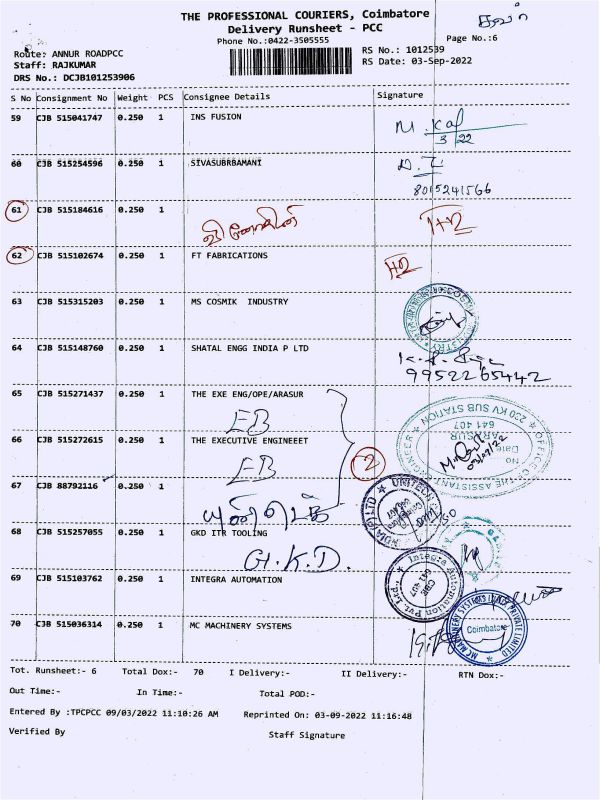 THE PROFESSIONAL COURIERS, Coimbatore
Delivery Runsheet - PCC
Phone No.:0422-3505555
Page No.:6
Route: ANNUR ROADPCC
RS No.: 1012539
Staff: RAJKUMAR
RS Date: 03-Sep-2022
DRS No.: DCJB101253906
S No Consignment No Weight PCS Consignee Details Signature
59 CJB 515041747 0.250 1 INS FUSION
3/22
60 CJB 515254596 0.250 1 SIVASUBRBAMANI
8015241566
61 CJB 515184616 0.250 1
62 CJB 515102674 0.250 1 FT FABRICATIONS
63 CJB 515315203 0.250 1 MS COSMIK INDUSTRY
64 CJB 515148760 0.250 1 SHATAL ENGG INDIA P LTD
9952265442
65 CJB 515271437 0.250 1 THE EXE ENG/OPE/ARASUR
EB
66 CJB 515272615 0.250 1 THE EXECUTIVE ENGINEEET
EB
2
OFFICE OF THE ASSISTANT ENGINEER
230 KV SUB STATION
ARASUR
641 407
No
Date
67 CJB 88792116 0.250 1
68 CJB 515257055 0.250 1 GKD ITR TOOLING
G.K.D.
69 CJB 515103762 0.250 1 INTEGRA AUTOMATION
Integra Automation Pvt. Ltd.
70 CJB 515036314 0.250 1 MC MACHINERY SYSTEMS
Coimbatore
Tot. Runsheet:- 6 Total Dox:- 70 I Delivery:- II Delivery:- RTN Dox:-
Out Time:- In Time:- Total POD:-
Entered By :TPCPCC 09/03/2022 11:10:26 AM Reprinted On: 03-09-2022 11:16:48
Verified By Staff Signature